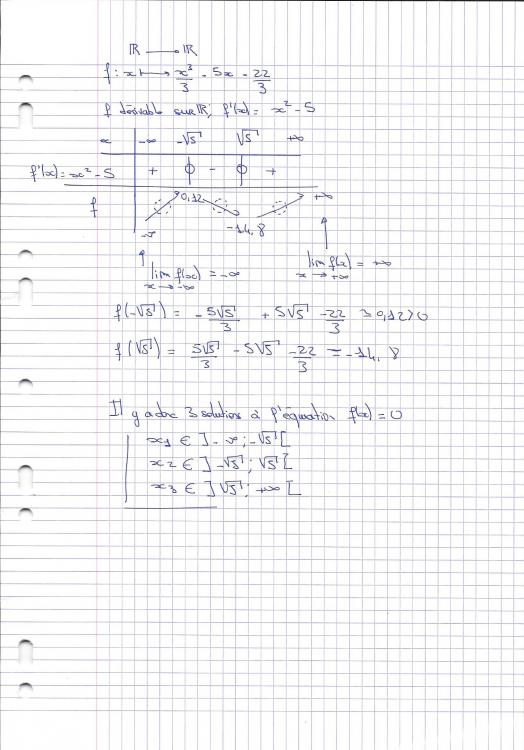 ℝ → ℝ
f : x ↦ x³/3 - 5x - 22/3
f dérivable sur ℝ, f'(x) = x² - 5
x -∞ -√5 √5 +∞
f'(x) = x² - 5 + 0 - 0 +
f -∞ 0,12 -14,8 +∞
lim f(x) = -∞ lim f(x) = +∞
x → -∞ x → +∞
f(-√5) = -5√5/3 + 5√5 - 22/3 ≃ 0,12 > 0
f(√5) = 5√5/3 - 5√5 - 22/3 = -14,8
Il y a donc 3 solutions à l'équation f(x) = 0
x1 ∈ ]-∞ ; -√5[
x2 ∈ ]-√5 ; √5[
x3 ∈ ]√5 ; +∞[